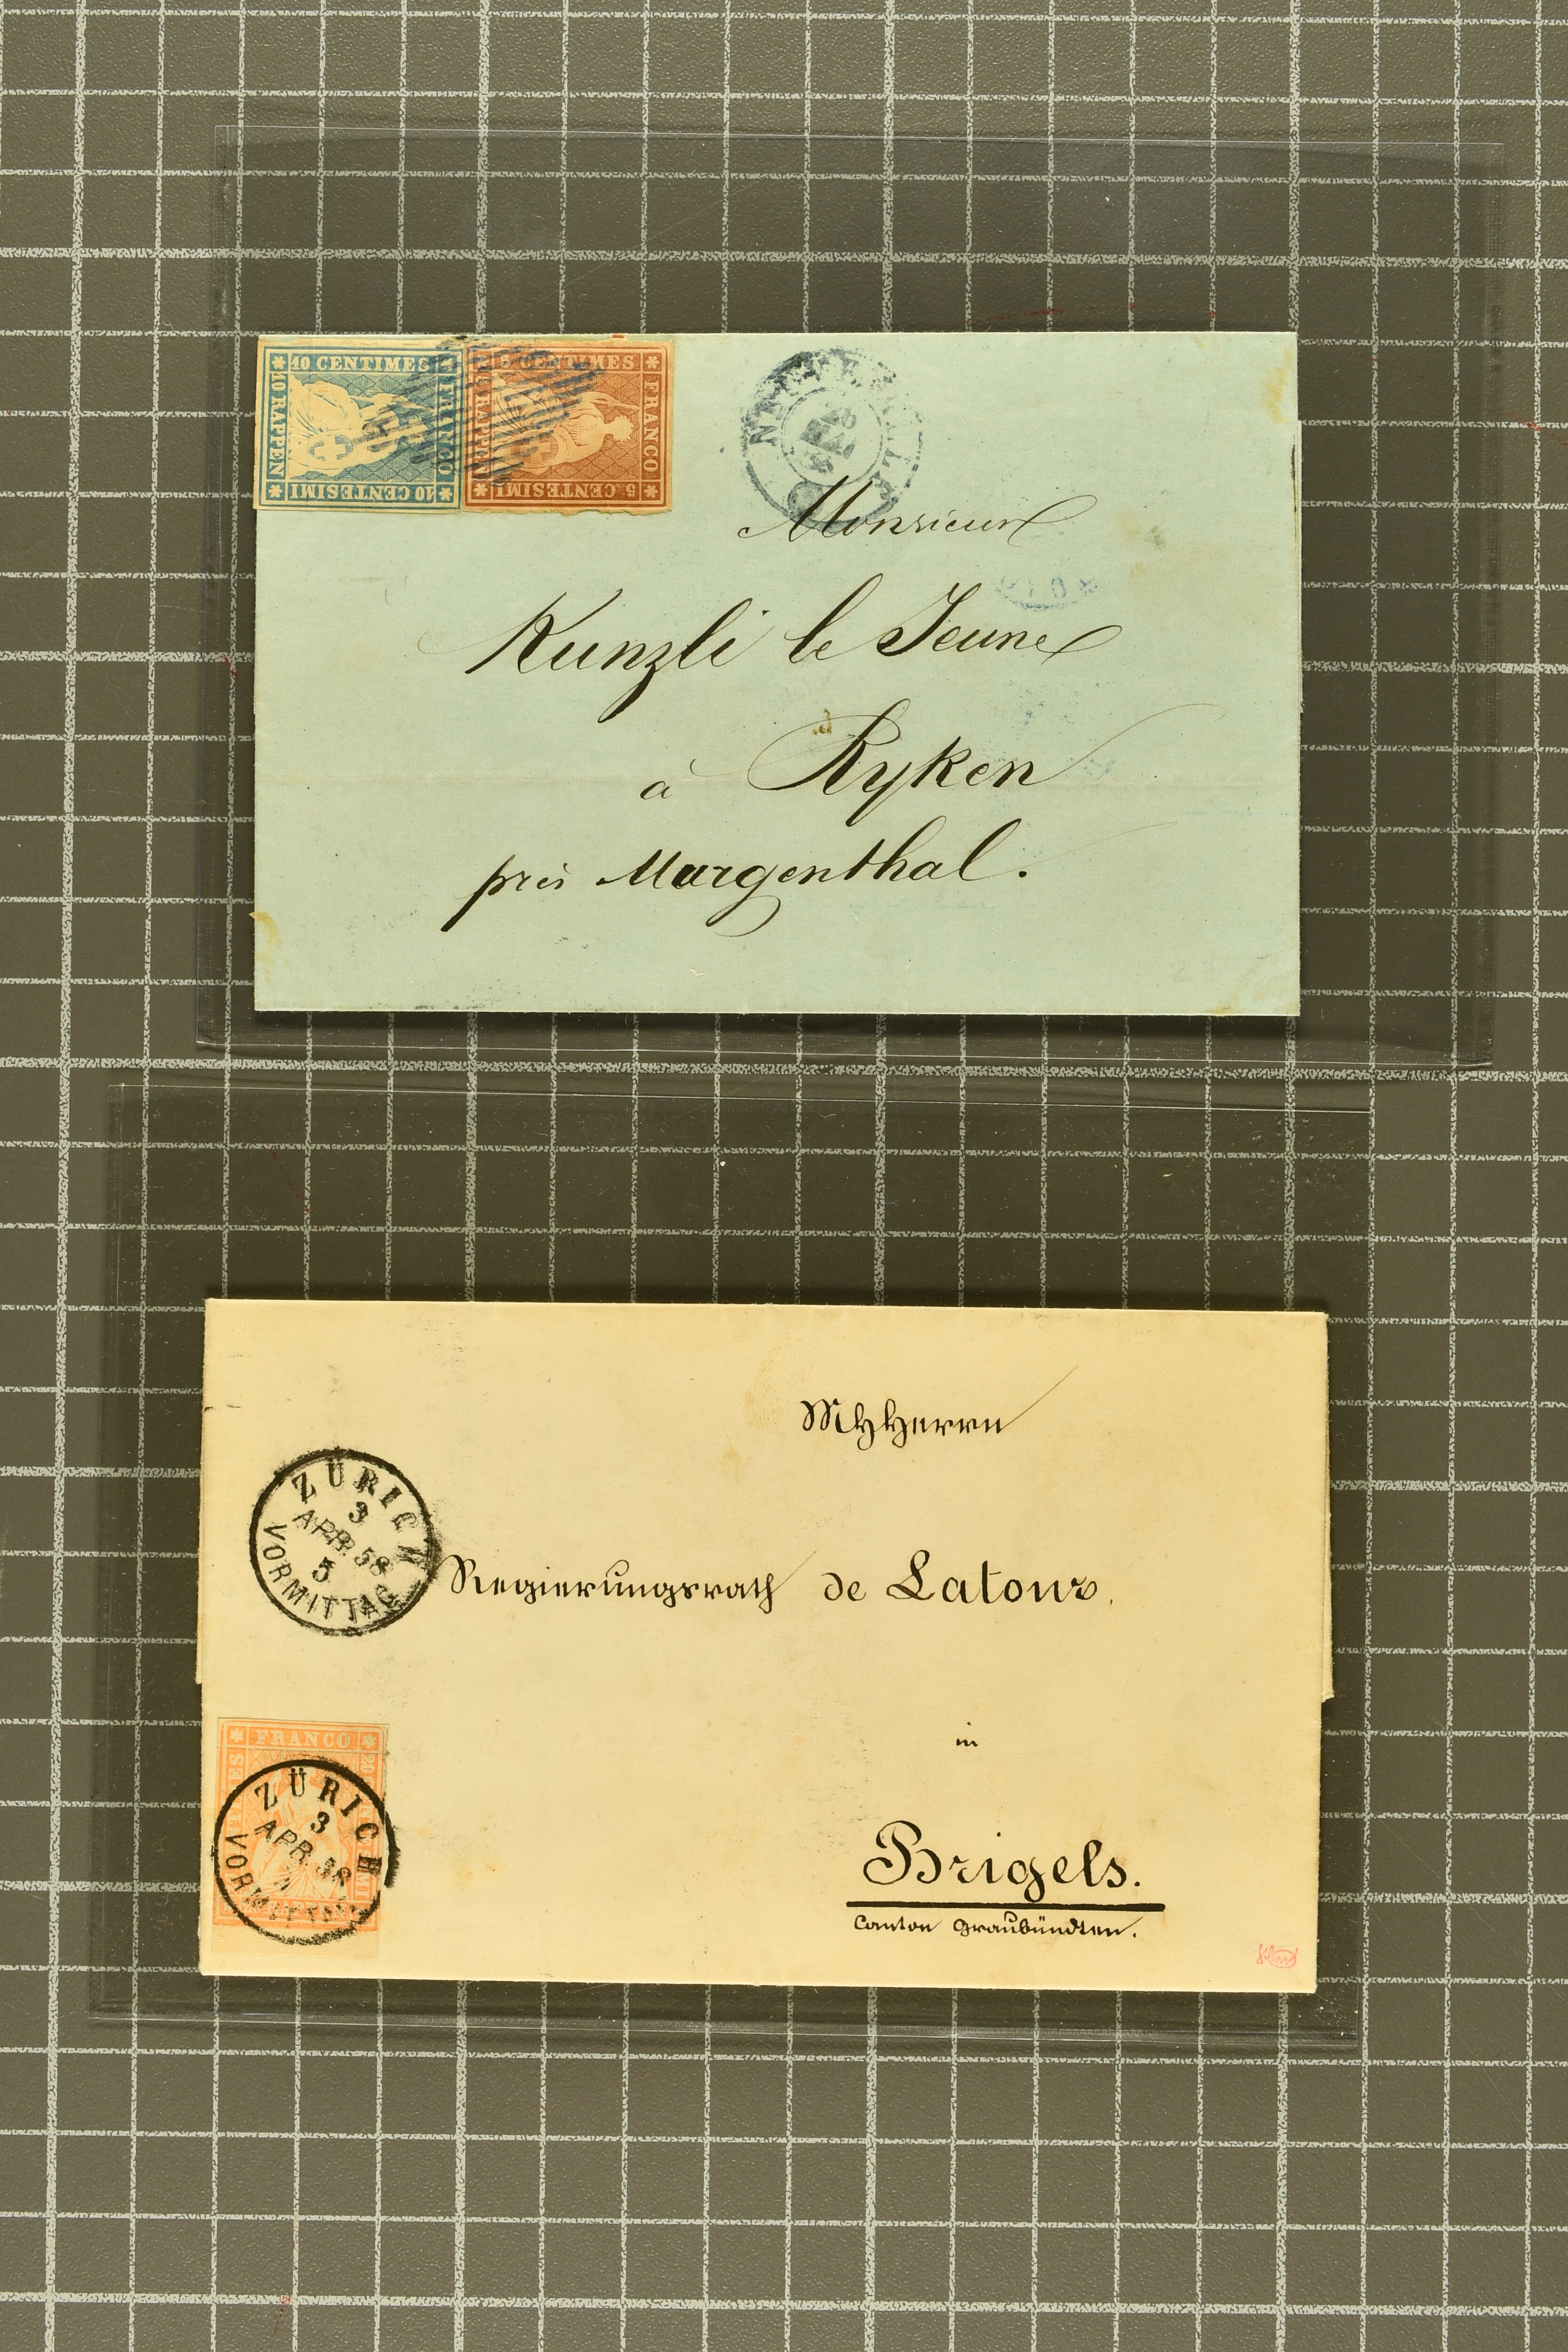 10 CENTIMES
10 RAPPEN
FRANCO
10 CENTESIMI
5 CENTIMES
RAPPEN
FRANCO
5 CENTESIMI
Monsieur
Kunzli le Jeune
à Ryken
près Murgenthal.
MhHerrn
ZÜRICH
3
APR. 58
5
VORMITTAG
Regierungsrath de Latour.
in
Brigels.
Canton Graubündten.
FRANCO
20
ZÜRICH
3
APR. 58
VORMITTAG